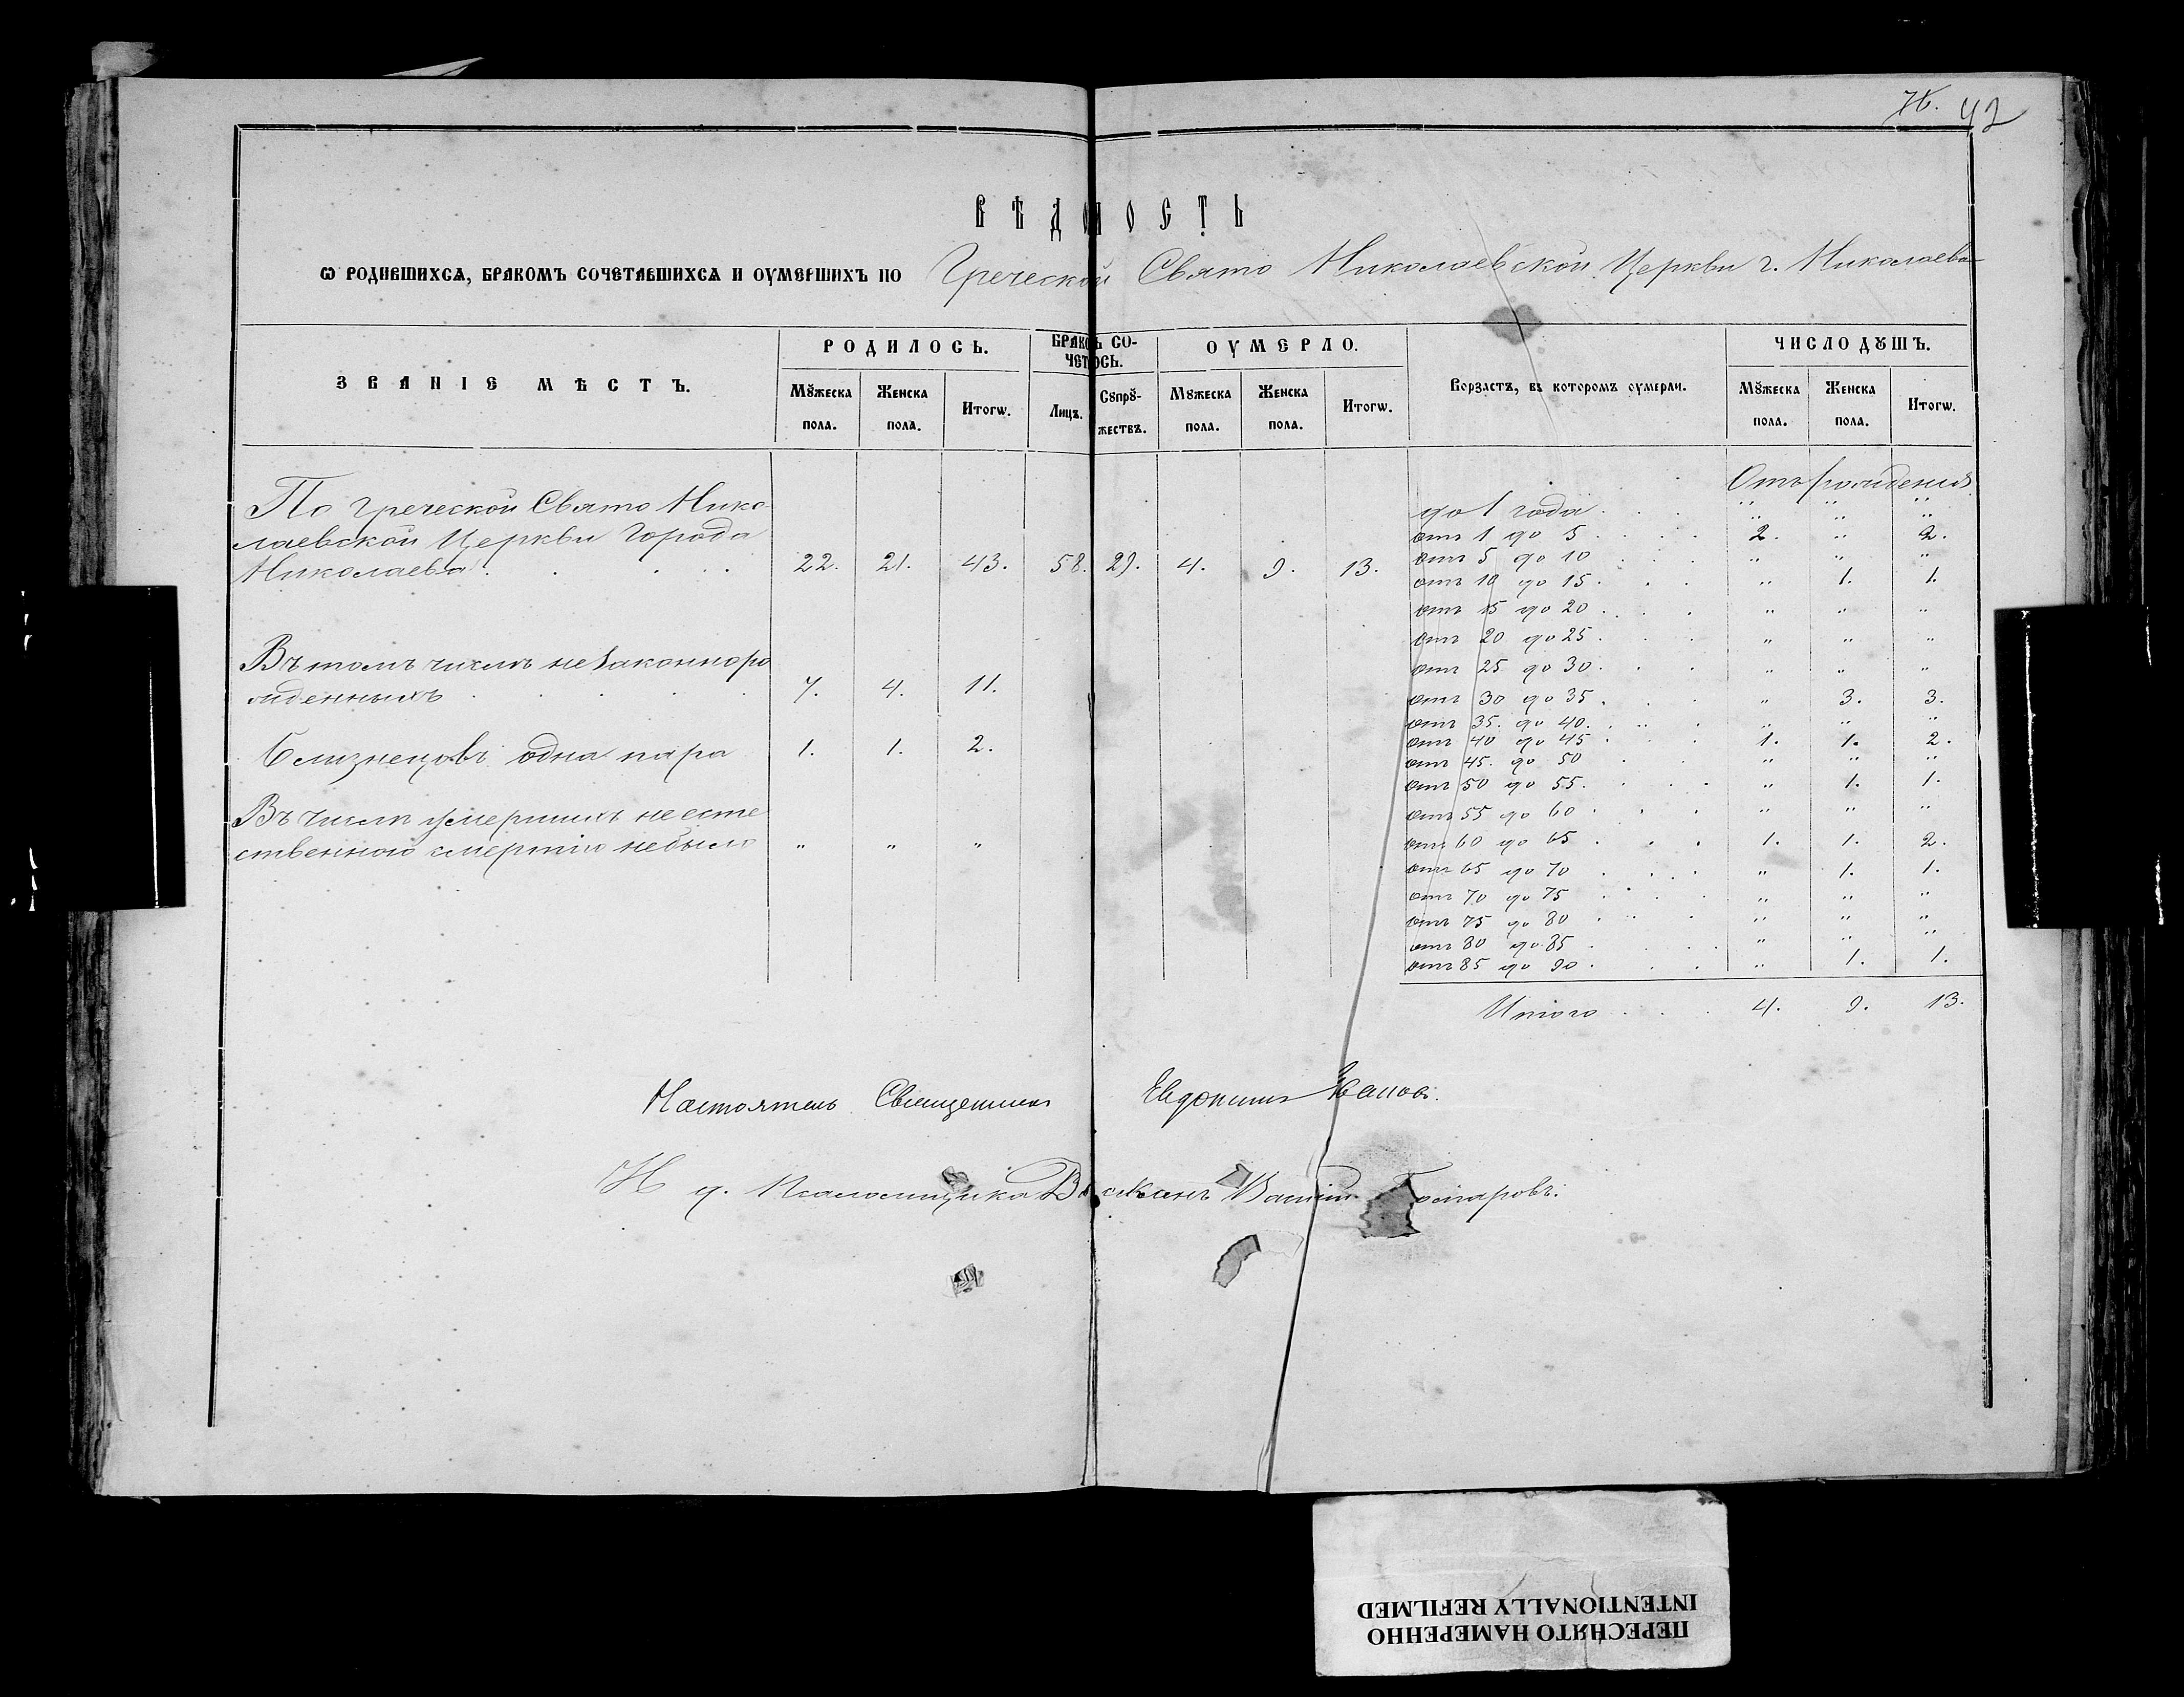 42
ВѢДОМОСТЬ
Ѡ РОДИВШИХСѦ, БРАКОМЪ СОЧЕТАВШИХСѦ И ОУМЕРШИХЪ ПО Греческой Свято Николаевской Церкви г. Николаева
ЗВАНІЕ МѢСТЪ. РОДИЛОСЬ. БРАКОМЪ СОЧЕТАЛОСЬ. ОУМЕРЛО. Возрастъ, въ которомъ оумерли. ЧИСЛО ДꙊШЪ.
Мꙋжеска пола. Женска пола. Итогѡ. Лицъ. Сꙋпрꙋжествъ. Мꙋжеска пола. Женска пола. Итогѡ. Мꙋжеска пола. Женска пола. Итогѡ.
По Греческой Свято Нико
лаевской Церкви Города
Николаева . . . . 22. 21. 43. 58. 29. 4. 9. 13.
Въ томъ числѣ незаконноро
жденныхъ . . . . . 7. 4. 11.
Близнецовъ одна пара 1. 1. 2.
Въ числѣ умершихъ не есте
ственною смертію небыло " " "
Отъ рожденія
до 1 года . . . " " "
отъ 1 до 5 . . . . 2. " 2.
отъ 5 до 10 . . . " " "
отъ 10 до 15 . . . " 1. 1.
отъ 15 до 20 . . . " " "
отъ 20 до 25 . . . " " "
отъ 25 до 30 . . . " " "
отъ 30 до 35 . . . " 3. 3.
отъ 35. до 40. . . . " " "
отъ 40 до 45 . . . 1. 1. 2.
отъ 45. до 50 . . " " "
отъ 50 до 55. . . . " 1. 1.
отъ 55 до 60 . . . " " "
отъ 60 до 65 . . . 1. 1. 2.
отъ 65 до 70 . . . . " 1. 1.
отъ 70 до 75 . . . . " " "
отъ 75 до 80 . . . " " "
отъ 80 до 85 . . . . " " "
отъ 85 до 90 . . . " 1. 1.
Итого . . . . 4. 9. 13.
Настоятель Священникъ Евдокимъ Ивановъ.
И д. Псаломщика
ПЕРЕСНЯТО НАМЕРЕННО
INTENTIONALLY REFILMED